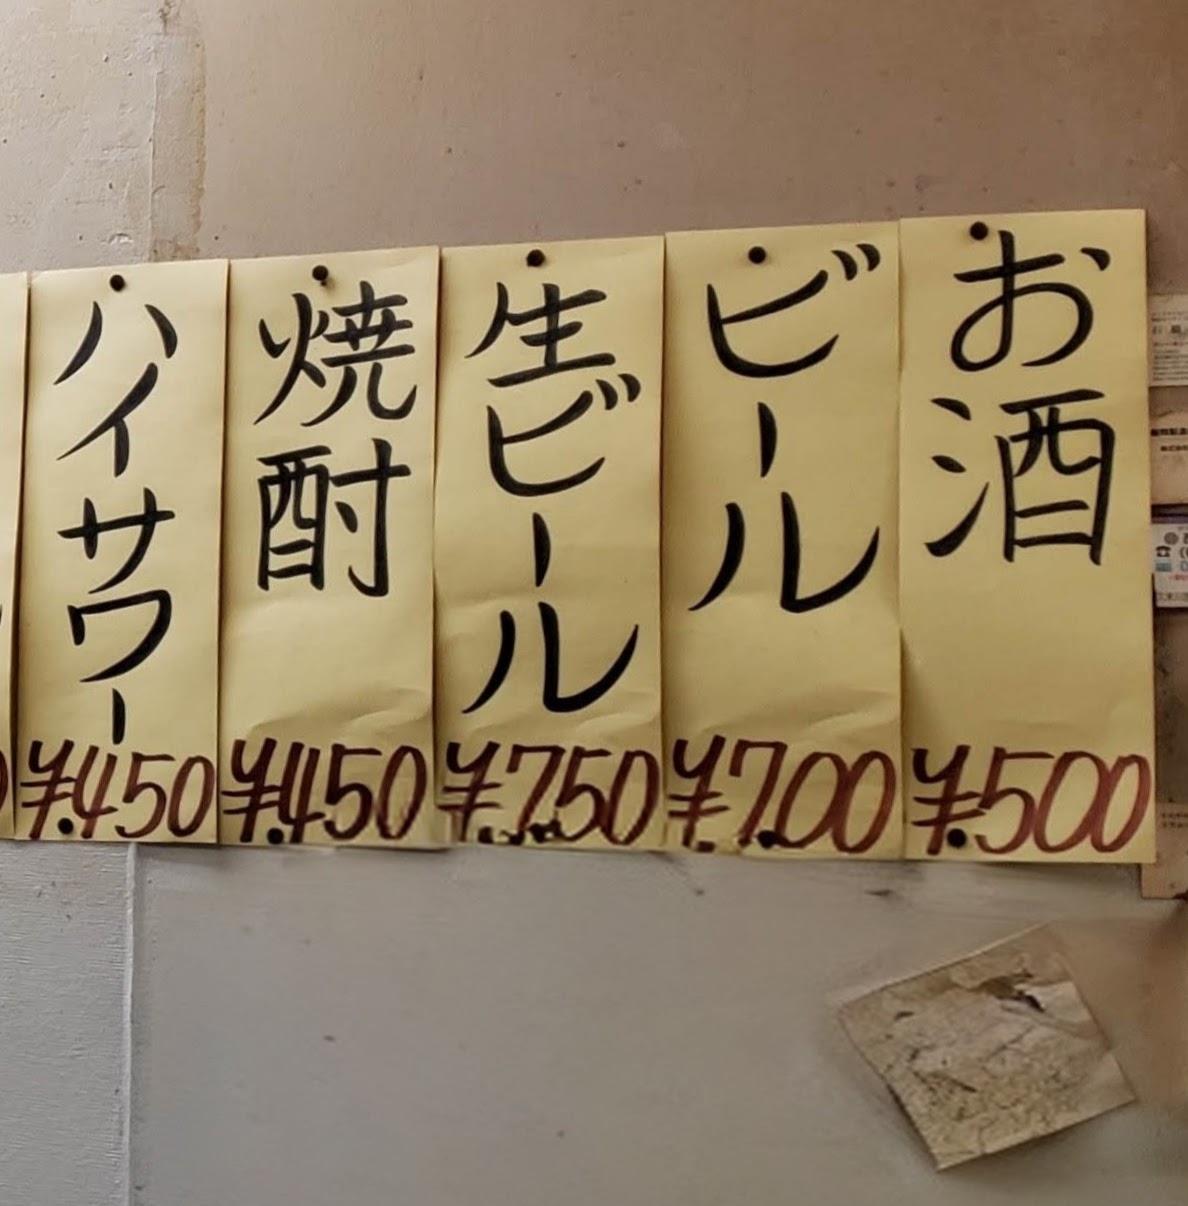 お酒
¥500
ビール
¥700
生ビール
¥750
焼酎
¥450
ハイサワー
¥450